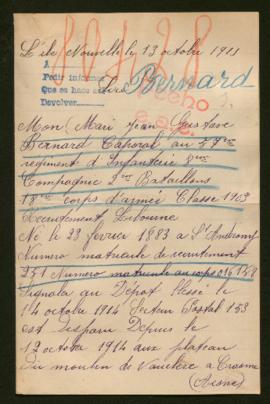 L'ile Nouvelle le 13 octobre 1911
A
Pedir informes
Que se haga
Devolver
Bernard
Mon Mari Jean Gustave
Bernard Caporal au 57me
regiment d'Infanterie 8me
Compagnie 2me Bataillons
18me corps d'armée Classe 1903
Recrutement Libourne
Né le 23 fevrier 1883 a St Androny
Numero matricule de recrutement
251 Numero matricule au corps
Signala au Dépot blessé le
14 octobre 1914 Secteur Postal 153
est disparu Depuis le
12 octobre 1914 aux plateau
du moulin de Vauclere a Craonne
(Aisne)